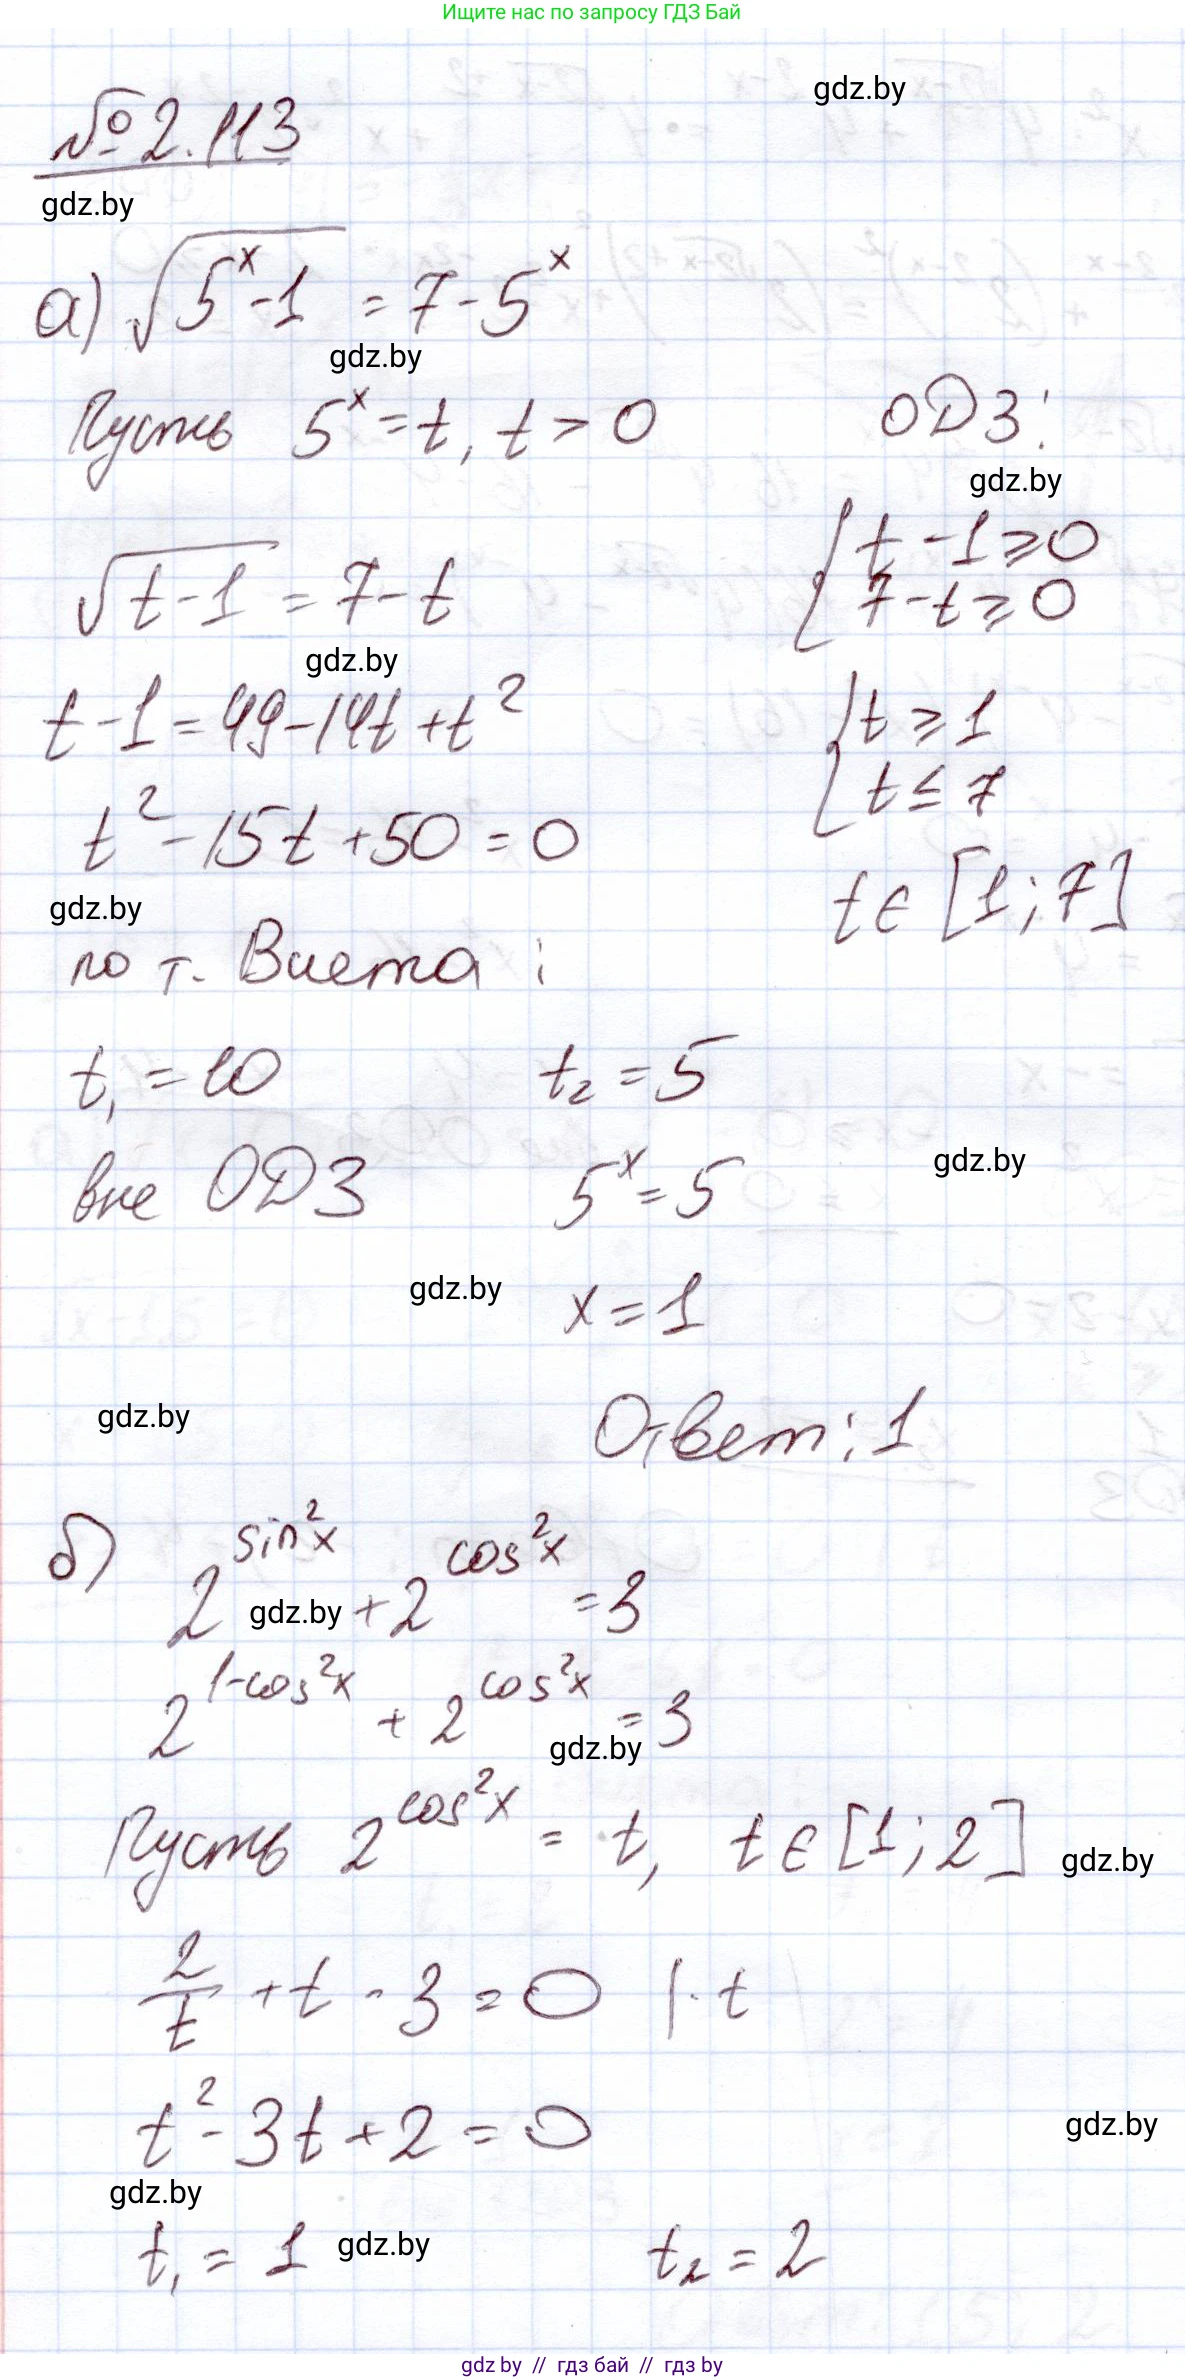 Ищите нас по запросу ГДЗ Бай
gdz.by
№ 2.113
gdz.by
а) √(5^x - 1) = 7 - 5^x
gdz.by
Пусть 5^x = t, t > 0
ОДЗ:
gdz.by
{ t - 1 ≥ 0
7 - t ≥ 0
√(t - 1) = 7 - t
gdz.by
t - 1 = 49 - 14t + t²
{ t ≥ 1
t ≤ 7
t² - 15t + 50 = 0
t ∈ [1; 7]
gdz.by
по т. Виета:
t₁ = 10 t₂ = 5
вне ОДЗ 5^x = 5
gdz.by
gdz.by
x = 1
gdz.by
Ответ: 1
б) 2^(sin²x) + 2^(cos²x) = 3
gdz.by
2^(1-cos²x) + 2^(cos²x) = 3
gdz.by
Пусть 2^(cos²x) = t, t ∈ [1; 2]
gdz.by
2/t + t - 3 = 0 | · t
t² - 3t + 2 = 0
gdz.by
gdz.by
t₁ = 1 gdz.by t₂ = 2
gdz.by // гдз бай // гдз by